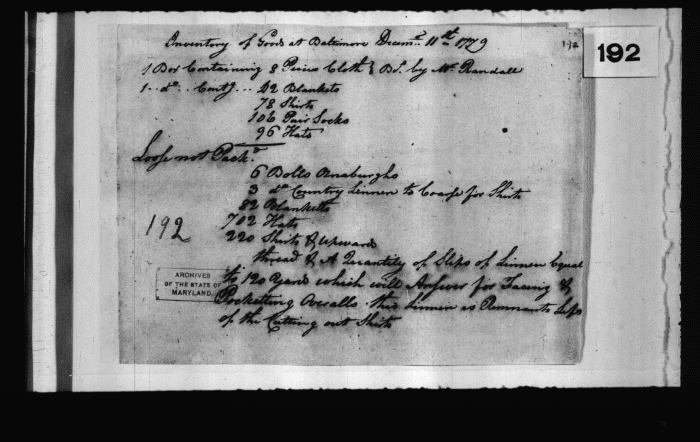 Inventory of Goods at Baltimore Decemr. 11th 1779
192
1 Box Containing 8 Peices Cloth } Bt. by Mr. Randall
1 .. do .. Contg ... 42 Blankets
78 Shirts
106 Pair Socks
96 Hats
Loose not Packd.
6 Bolts Osnaburghs
3 do Country Linnen to Coarse for Shirts
82 Blanketts
192
702 Hats
220 Shirts & Upward
thread & A Quantity of Slips of Linnen Equal
to 120 Yards which will Answer for Facing &
Pocketting Overalls this Linnen is Remnants Left
of the Cutting out Shirts
ARCHIVES
OF THE STATE OF
MARYLAND